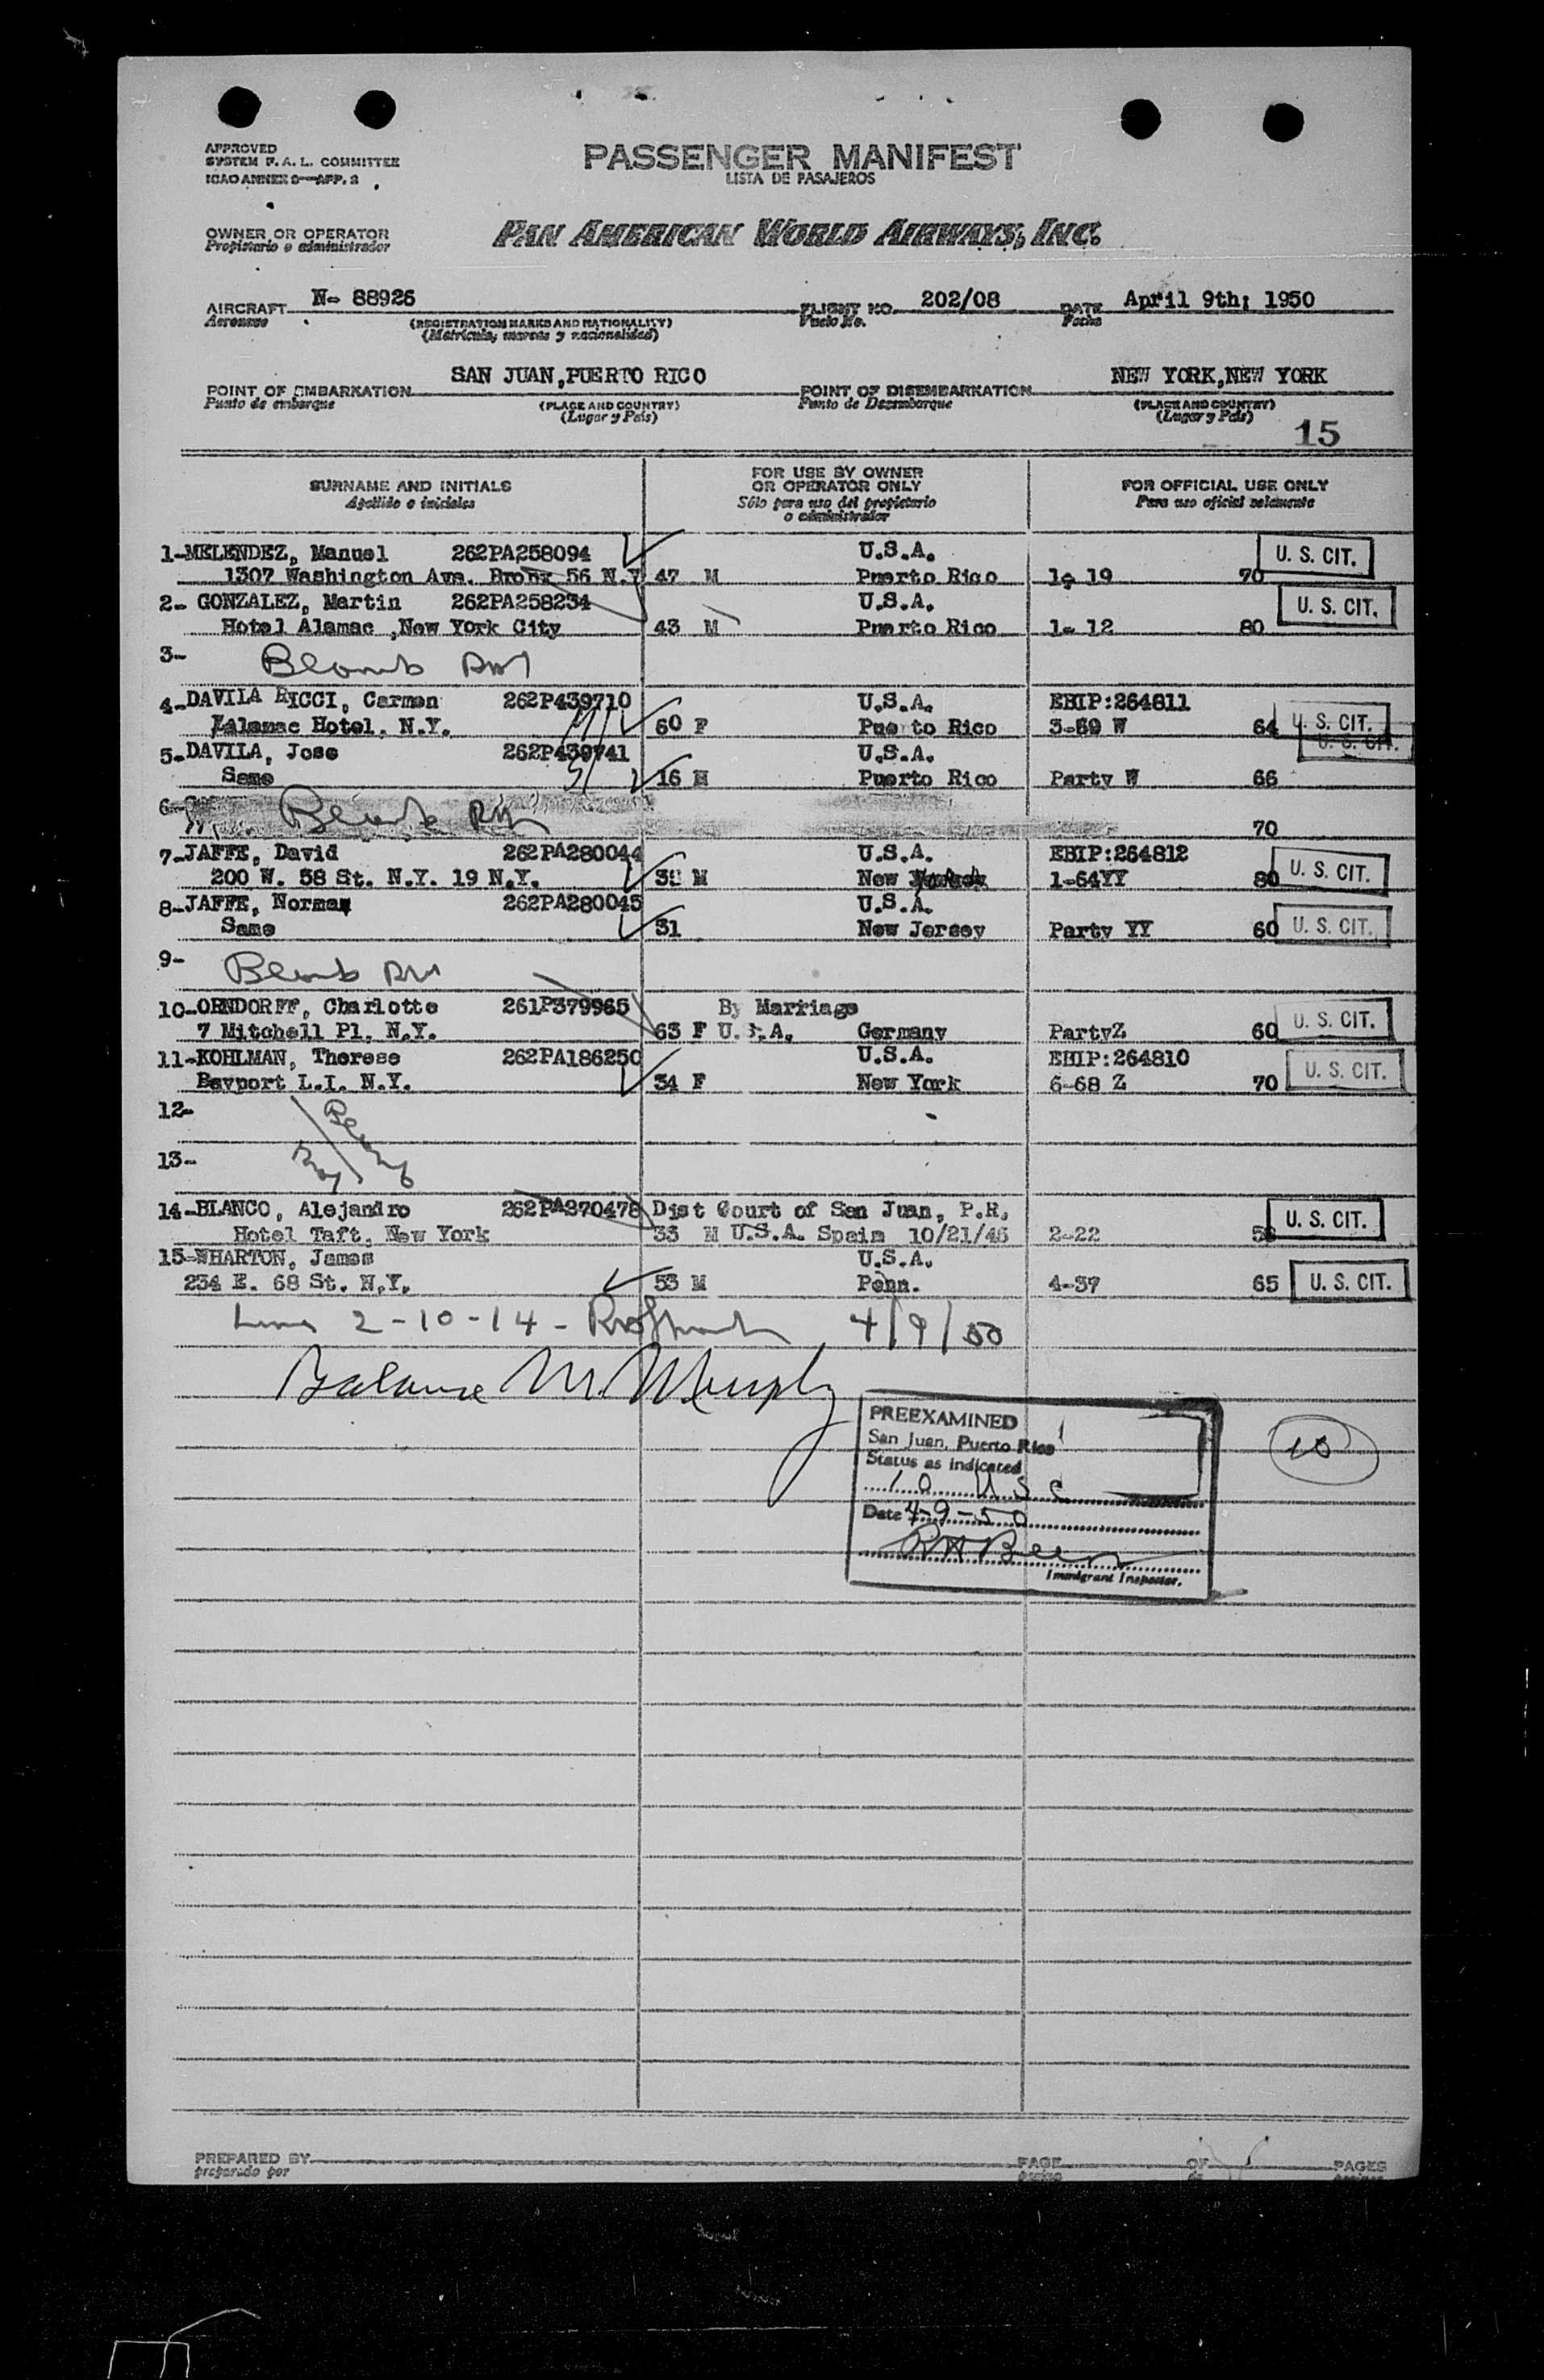 APPROVED
SYSTEM F. A. L. COMMITTEE
ICAO ANNEX 9—APP. 2
PASSENGER MANIFEST
LISTA DE PASAJEROS
OWNER OR OPERATOR
Propietario o administrador
PAN AMERICAN WORLD AIRWAYS, INC.
AIRCRAFT N- 88926 FLIGHT NO. 202/08 DATE April 9th; 1950
Aeronave (REGISTRATION MARKS AND NATIONALITY) Vuelo No. Fecha
(Matrícula, marcas y nacionalidad)
POINT OF EMBARKATION SAN JUAN,PUERTO RICO POINT OF DISEMBARKATION NEW YORK,NEW YORK
Punto de embarque (PLACE AND COUNTRY) Punto de Desembarque (PLACE AND COUNTRY)
(Lugar y País) (Lugar y País)
15
SURNAME AND INITIALS FOR USE BY OWNER OR OPERATOR ONLY FOR OFFICIAL USE ONLY
Apellido e iniciales Sólo para uso del propietario o administrador Para uso oficial solamente
1-MELENDEZ, Manuel 262PA258094 U.S.A. U. S. CIT.
1307 Washington Ave. Bronx 56 N.Y 47 M Puerto Rico 1- 19 70
2- GONZALEZ, Martin 262PA258234 U.S.A. U. S. CIT.
Hotel Alamac ,New York City 43 M Puerto Rico 1- 12 80
3- Blank
4-DAVILA RICCI, Carmen 262P439710 U.S.A. EBIP:264811
Alamac Hotel, N.Y. 60 F Pue to Rico 3-59 W 64 U. S. CIT.
5-DAVILA, Jose 262P439741 U.S.A. U. S. CIT.
Same 16 M Puerto Rico Party W 66
6- Blank
70
7-JAFFE, David 262PA280044 U.S.A. EBIP:264812
200 W. 58 St. N.Y. 19 N.Y. M New 1-64YY 80 U. S. CIT.
8-JAFFE, Norma 262PA280045 U.S.A.
Same 31 New Jersey Party YY 60 U. S. CIT.
9- Blank
10-ORNDORFF, Charlotte 261P379965 By Marriage
7 Mitchell Pl. N.Y. 63 F U.S.A. Germany PartyZ 60 U. S. CIT.
11-KOHLMAN, Therese 262PA186250 U.S.A. EBIP:264810
Bayport L.I. N.Y. 34 F New York 6-68 Z 70 U. S. CIT.
12- Blank
13-
14-BLANCO, Alejandro 262PA270478 Dist Court of San Juan, P.R.
Hotel Taft, New York 33 M U.S.A. Spain 10/21/46 2-22 U. S. CIT.
15-WHARTON, James U.S.A.
234 E. 68 St. N.Y. 53 M Penn. 4-37 65 U. S. CIT.
Lines 2-10-14- 4/9/50
Balance M. Murphy
PREEXAMINED
San Juan, Puerto Rico
Status as indicated
10 USC
Date 4-9-50
Immigrant Inspector.
10
PREPARED BY PAGE OF PAGES
preparado por página de páginas